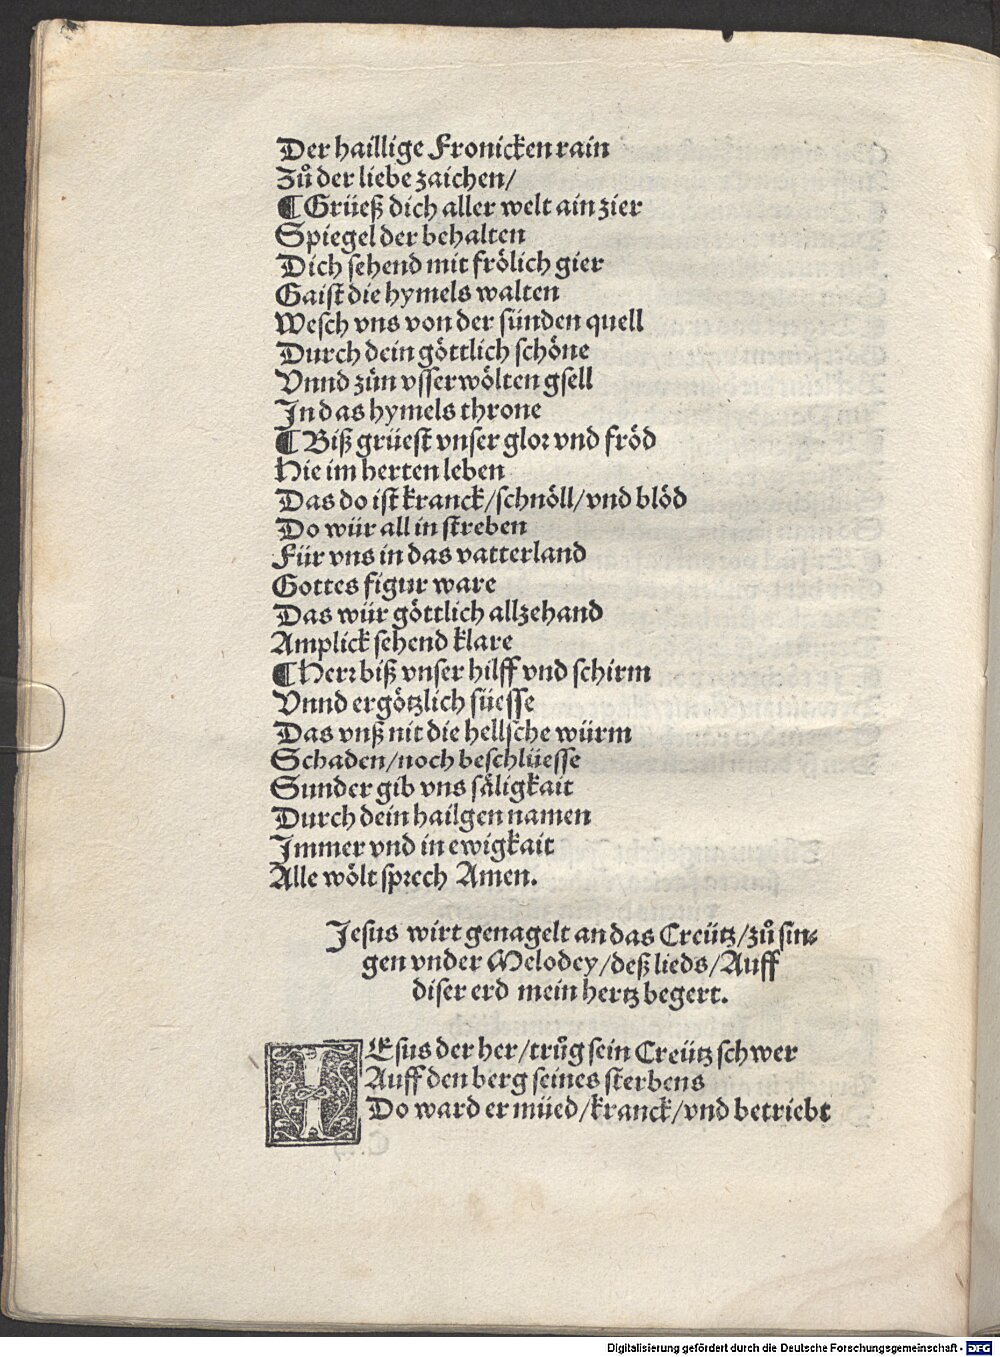 Der haillige Fronicken rain
Zů der liebe zaichen/
¶ Grüeß dich aller welt ain zier
Spiegel der behalten
Dich sehend mit frölich gier
Gaist die hymels walten
Wesch vns von der sünden quell
Durch dein göttlich schöne
Vnnd zün vsserwölten gsell
In das hymels throne
¶ Biß grüest vnser glor vnd fröd
Hie im herten leben
Das do ist kranck/schnöll/vnd blöd
Do wür all in streben
Für vns in das vatterland
Gottes figur ware
Das wür göttlich allzehand
Amplick sehend klare
¶ Herr biß vnser hilff vnd schirm
Vnnd ergötzlich süesse
Das vnß nit die hellsche würm
Schaden/noch beschlüesse
Sunder gib vns säligkait
Durch dein hailgen namen
Immer vnd in ewigkait
Alle wölt sprech Amen.
Jesus wirt genagelt an das Creütz/zů sin⸗
gen vnder Melodey/deß lieds/Auff
diser erd mein hertz begert.
IEsus der her/trůg sein Creütz schwer
Auff den berg seines sterbens
Do ward er müed/kranck/vnd betriebt
Digitalisierung gefördert durch die Deutsche Forschungsgemeinschaft - DFG